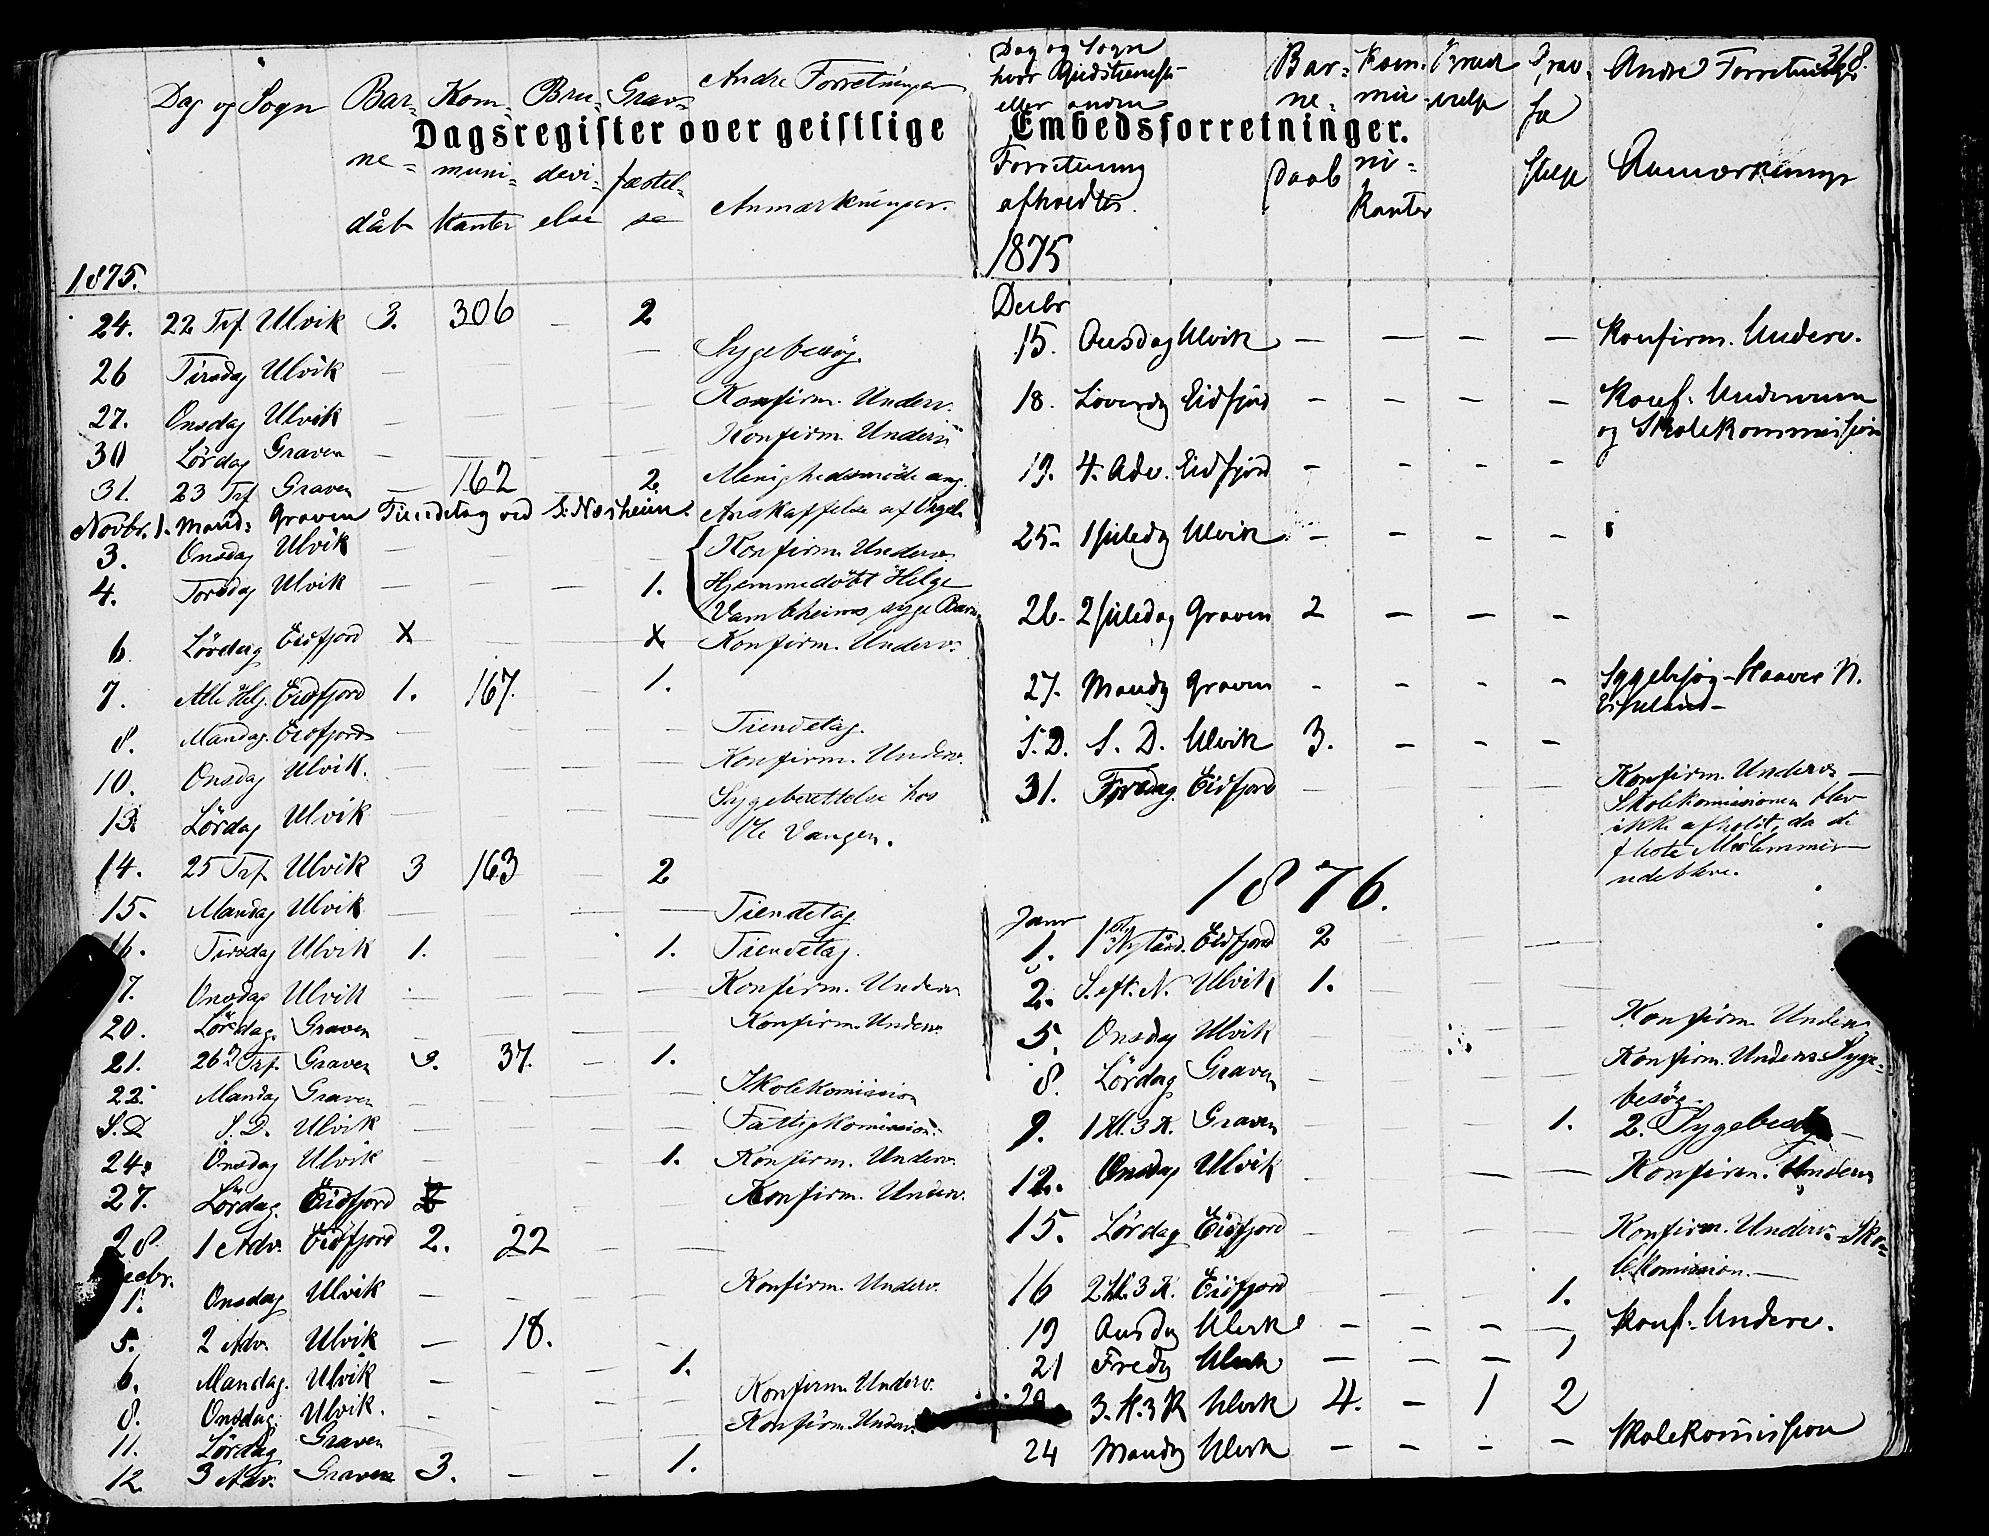 Dag og Sogn Bar- Kom- Bru- Grav- Andre Forretninger
Dagsregister over geistlige
ne- muni- devi- fæstel- Anmærkninger.
dåb kanter else se
1875.
24. 22 Trf. Ulvik 3. 306 — 2
26 Tirsdag Ulvik — — Sygebesøg.
27. Onsdag Ulvik — — Konfirm. Underv.
30 Lördag Graven — — Konfirm. Underv
31. 23 Trf Graven — 162 — 2. Menighedsmöde ang.
Novbr. 1. Mand: Graven Tiendetag ved S. Næsheim. Anskaffelse af Orgel.
3. Onsdag Ulvik — — Konfirm. Underv.
4. Torsdag Ulvik — — 1. Hjemmedöbt Helge
syge Barn
6 Lördag Eidfjord x x Konfirm. Underv.
7. Alle Helg. Eidfjord 1. 167. — 1.
8. Mandag. Eidfjord — — Tiendetag.
10. Onsdag Ulvik. — — Konfirm. Underv.
13. Lördag Ulvik — — Sygeberettelse hos
Ole Vangen.
14. 25 Trf. Ulvik 3 163 — 2
15. Mandag Ulvik — — Tiendetag
16. Tirsdag Ulvik 1. — 1. Tiendetag.
7. Onsdag Ulvik — — Konfirm. Underv
20. Lördag. Graven — Konfirm. Underv
21. 26 Trf. Graven 3. 37. — 1.
22. Mandag Graven — — Skolekomission
S.D S. D. Ulvik — — Fattigkomission.
24. Onsdag Ulvik — — 1. Konfirm. Underv.
27. Lördag. Eidfjord Konfirm. Underv.
28 1 Adv. Eidfjord 2. 22 — —
Decbr.
1. Onsdag Ulvik — — Konfirm. Underv.
5. 2 Adv. Ulvik — 18. —
6. Mandag. Ulvik — — 1.
8. Onsdag. Ulvik. — — Konfirm. Underv.
11. Lördag Graven — — Konfirm. Underv.
12. 3 Adv. Graven 3. — — 1.
Dag og Sogn Bar- Kom- Brud Grav- Andre Forretninger 368.
hvor Gudstjeneste ne- mu- vielse fæ
eller andre
Embedsforretninger.
Forretning Daab ni- stelse Anmærkninger
afholdtes. kanter
1875
Decbr
15. Onsdag Ulvik — — — — Konfirm. Underv.
18. Löverdg Eidfjord — — — — Konf. Underv
og Skolekommission
19. 4. Adv. Eidfjord — — — —
25. 1 Juledg Ulvik — — — —
26. 2 Juledag Graven 2 — — —
27. Mandg Graven — — — — Sygebesøg N.
S.D. S. D. Ulvik 3. — — —
31. Fredag. Eidfjord — — — — Konfirm. Underv. —
Skolekomissionen blev
ikke afholdt, da de
fleste Medlemmer
udebleve.
1876.
Janr
1. 1 Nytårsd. Eidfjord 2 — — —
2. S. eft. N. Ulvik 1. — — —
5. Onsdag Ulvik — — — Konfirm. Underv
8. Lördag Graven — — — Konfirm. Underv. Syge-
besøg.
9. 1 H. 3 K. Graven — — — 1. 2. Sygebesøg —
12. Onsdag Ulvik — — — Konfirm. Underv
15. Lördag Eidfjord — — — — Konfirm. Underv. Sko-
lekomission. —
16 2 H. 3 K. Eidfjord — — — 1.
19 Onsdg Ulvik — — — — Konf. Underv.
21 Fredg Ulvik — — — 1
3. H. 3 K Ulvik 4. — 1 2
24 Mandg Ulvik — — — — Skolekomission